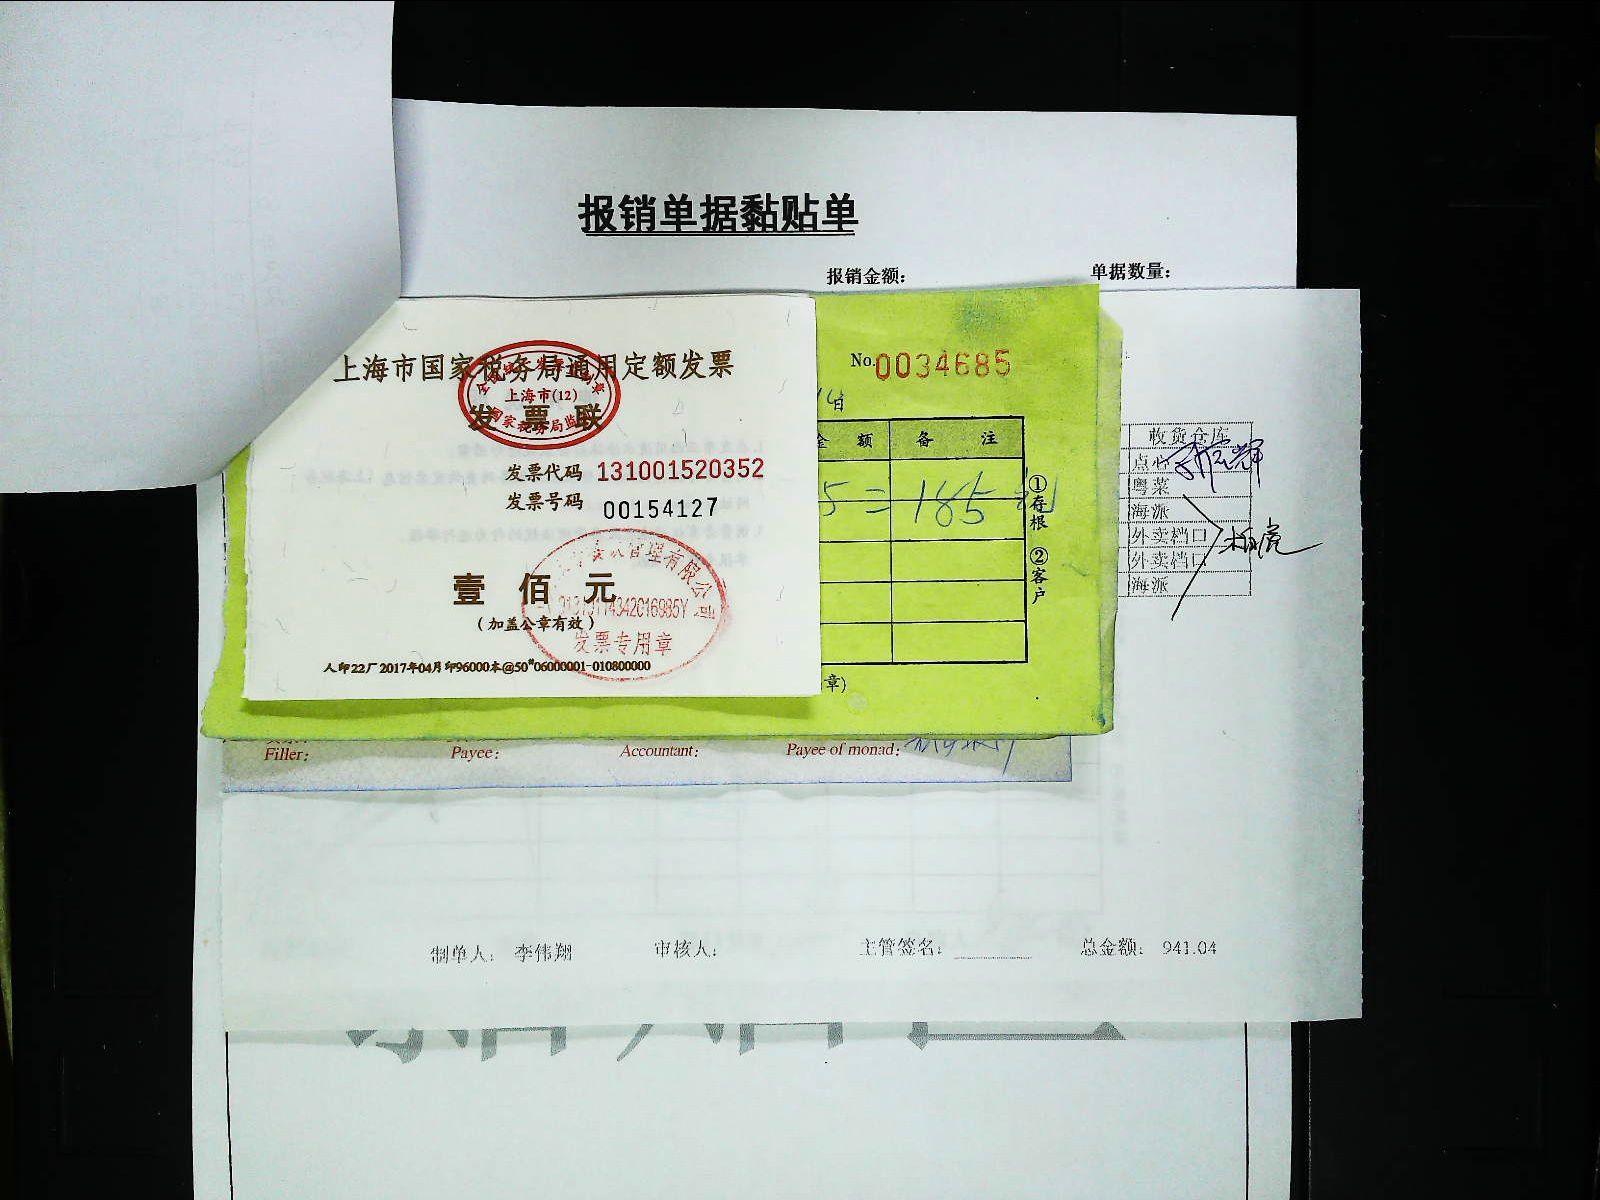 报销单据黏贴单
报销金额: 单据数量:
上海市国家税务局通用定额发票
上海市(12)
国家税务局监制
发票联
发票代码 131001520352
发票号码 00154127
壹佰元
(加盖公章有效)
管理有限公司
发票专用章
人印22厂2017年04月印96000本@50#06000001-010800000
No.0034685
日
金额 备注
5=185
①存根 ②客户
章)
收货仓库
点心
粤菜
海派
外卖档口
外卖档口
海派
Filler: Payee: Accountant: Payee of monad:
制单人: 李伟翔 审核人: 主管签名: 总金额: 941.04